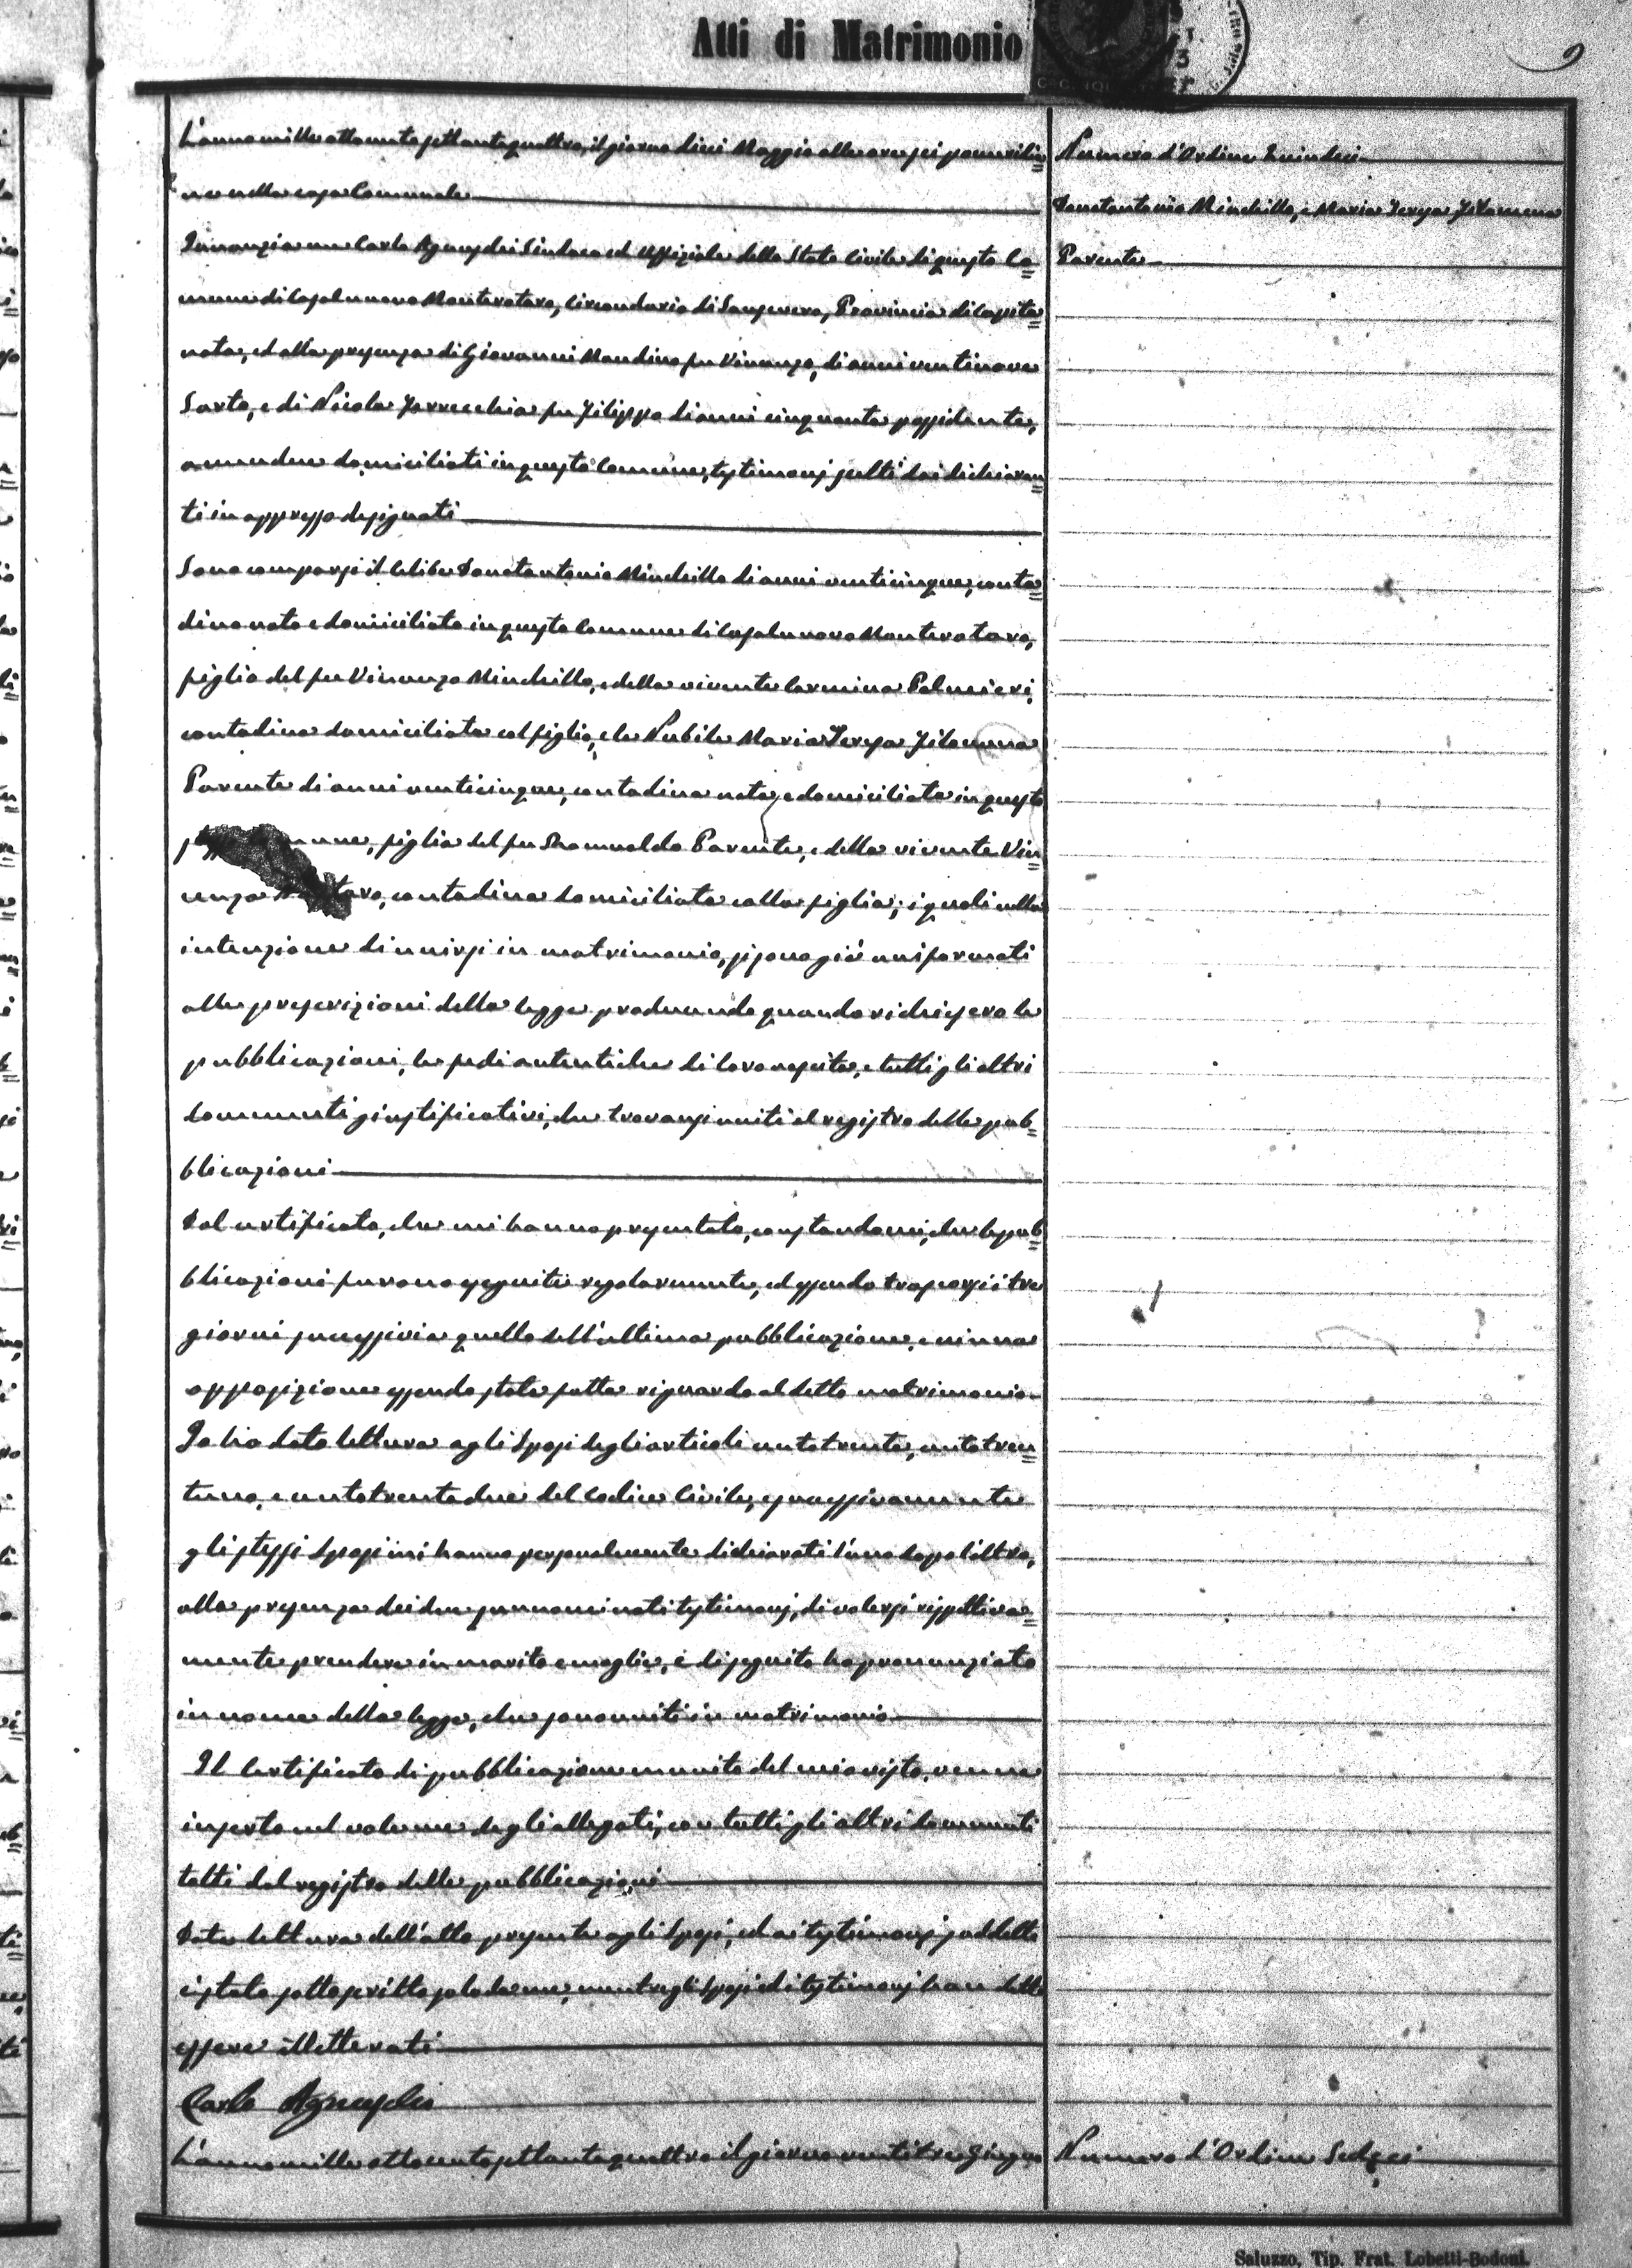 Atti di Matrimonio
9
L'anno mille ottocento settantaquattro, il giorno dieci Maggio alle ore sei pomeridia=
ne nella casa Comunale
Innanzi a me Carlo Agnusdei Sindaco ed Uffiziale dello Stato Civile di questo Co=
mune di Casalnuovo Monterotaro, Circondario di Sansevero, Provincia di Capita=
nata, ed alla presenza di Giovanni Mandino fu Vincenzo, di anni ventinove
Sarto, e di Nicola Ferrecchia fu Filippo di anni cinquanta possidente,
amendue domiciliati in questo Comune, testimonj scelti dai dichiaran=
ti in appresso designati
Sono comparsi il Celibe Donatantonio Minchillo di anni venticinque, conta=
dino nato e domiciliato in questo Comune di Casalnuovo Monterotaro,
figlio del fu Vincenzo Minchillo, e della vivente Carmina Palmieri
contadina domiciliata col figlio, e la Nubile Maria Teresa Filomena
Parente di anni venticinque, contadina nata, e domiciliata in questo
figlia del fu Romualdo Parente, e della vivente Vin=
cenza contadina domiciliata colla figlia; i quali nella
intenzione di unirsi in matrimonio, si sono già uniformati
alle prescrizioni della legge producendo quando richiesero le
pubblicazioni, le fedi autentiche di loro nascita, e tutti gli altri
documenti giustificativi, che trovansi uniti al registro delle pub=
blicazioni
Dal certificato, che mi hanno presentato, constandomi, che le pub=
blicazioni furono eseguite regolarmente, ed essendo trascorsi i tre
giorni successivi a quello dell'ultima pubblicazione, e niuna
opposizione essendo stata fatta riguardo al detto matrimonio
Io ho dato lettura agli Sposi degli articoli centotrenta, centotren=
tuno, e centotrentadue del Codice Civile, e successivamente
gli stessi Sposi mi hanno personalmente dichiarati l'uno dopo l'altro,
alla presenza dei due sunnominati testimonj, di volersi rispettiva=
mente prendere in marito e moglie, e di seguito ho pronunziato
in nome della legge, che sono uniti in matrimonio
Il Certificato di pubblicazione munito del mio visto, venne
inserto nel volume degli allegati, con tutti gli altri documenti
tolti dal registro delle pubblicazioni
Data lettura dell'atto presente agli Sposi, ed ai testimonj suddetti
è stato sottoscritto solo da me, mentre gli Sposi ed i testimonj han detto
essere illetterati
Carlo Agnusdei
L'anno mille ottocento settantaquattro il giorno ventitre Giugno
Numero d'Ordine Quindeci
Donatantonio Minchillo, e Maria Teresa Filomena
Parente
Numero d'Ordine Sedeci
Saluzzo, Tip. Frat. Lobetti-Bodoni.